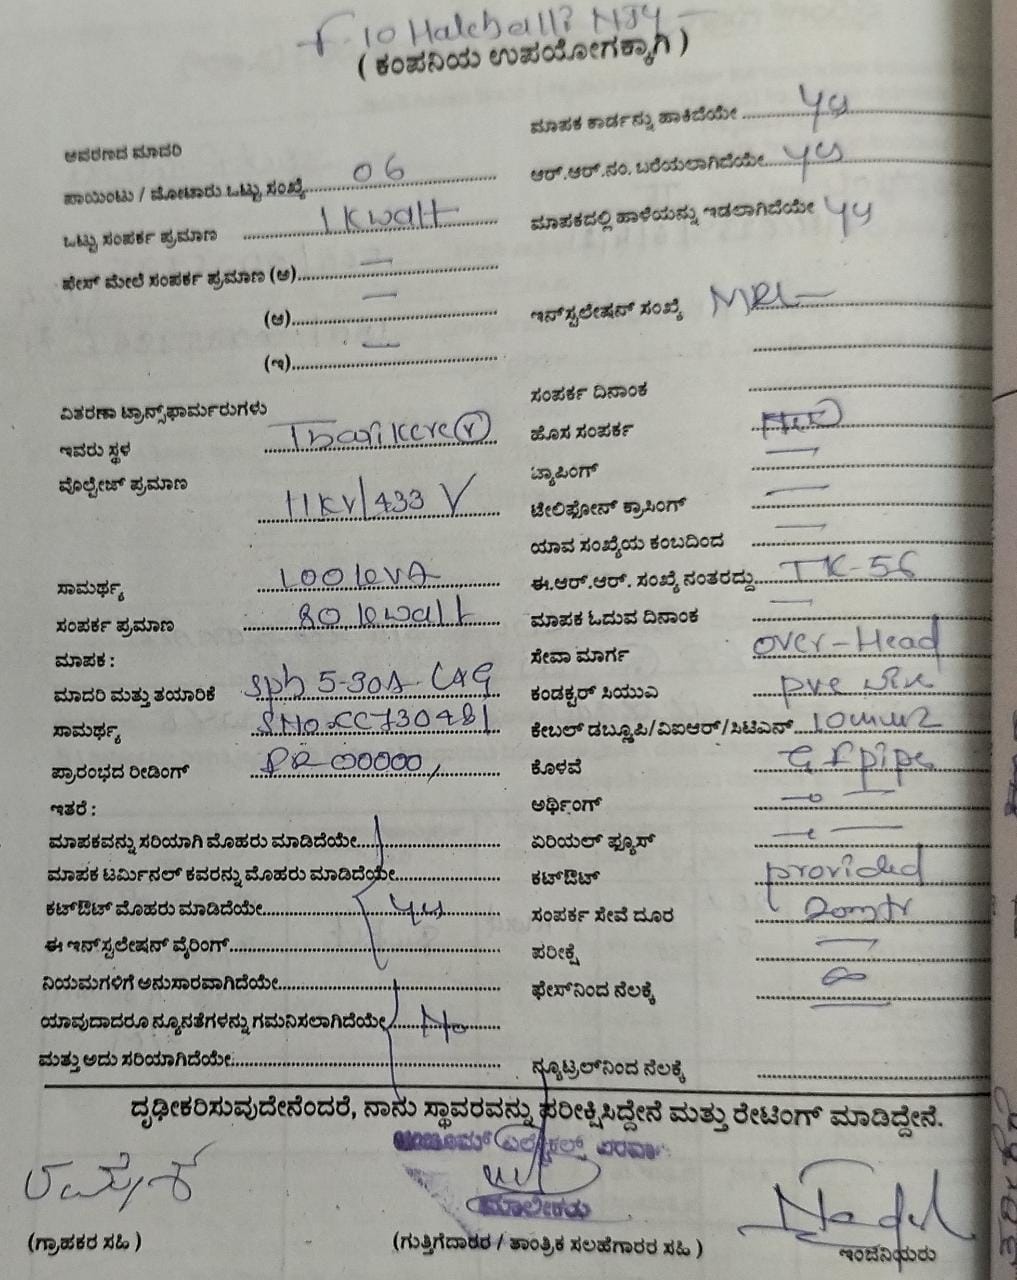 F-10 Halehalli NJY
( ಕಂಪನಿಯ ಉಪಯೋಗಕ್ಕಾಗಿ )
ಆವರಣದ ಮಾದರಿ
ಪಾಯಿಂಟು / ಮೋಟಾರು ಒಟ್ಟು ಸಂಖ್ಯೆ 06
ಒಟ್ಟು ಸಂಪರ್ಕ ಪ್ರಮಾಣ 1 Kwatt
ಫೇಸ್ ಮೇಲೆ ಸಂಪರ್ಕ ಪ್ರಮಾಣ (ಅ) —
(ಆ) —
(ಇ) —
ವಿತರಣಾ ಟ್ರಾನ್ಸ್‌ಫಾರ್ಮರುಗಳು
ಇವರು ಸ್ಥಳ Tharikere (R)
ವೊಲ್ಟೇಜ್ ಪ್ರಮಾಣ 11KV/433 V
ಸಾಮರ್ಥ್ಯ 100 KVA
ಸಂಪರ್ಕ ಪ್ರಮಾಣ 80 Kwatt
ಮಾಪಕ :
ಮಾದರಿ ಮತ್ತು ತಯಾರಿಕೆ Sph 5-30A
ಸಾಮರ್ಥ್ಯ
ಪ್ರಾರಂಭದ ರೀಡಿಂಗ್ 00000
ಇತರೆ :
ಮಾಪಕವನ್ನು ಸರಿಯಾಗಿ ಮೊಹರು ಮಾಡಿದೆಯೇ
ಮಾಪಕ ಟರ್ಮಿನಲ್ ಕವರನ್ನು ಮೊಹರು ಮಾಡಿದೆಯೇ
ಕಟ್‌ಔಟ್ ಮೊಹರು ಮಾಡಿದೆಯೇ yes
ಈ ಇನ್‌ಸ್ಟಲೇಷನ್ ವೈರಿಂಗ್
ನಿಯಮಗಳಿಗೆ ಅನುಸಾರವಾಗಿದೆಯೇ
ಯಾವುದಾದರೂ ನ್ಯೂನತೆಗಳನ್ನು ಗಮನಿಸಲಾಗಿದೆಯೇ No
ಮತ್ತು ಅದು ಸರಿಯಾಗಿದೆಯೇ
ಮಾಪಕ ಕಾರ್ಡನ್ನು ಹಾಕಿದೆಯೇ yes
ಆರ್.ಆರ್.ನಂ. ಬರೆಯಲಾಗಿದೆಯೇ yes
ಮಾಪಕದಲ್ಲಿ ಹಾಳೆಯನ್ನು ಇಡಲಾಗಿದೆಯೇ yes
ಇನ್‌ಸ್ಟಲೇಷನ್ ಸಂಖ್ಯೆ
ಸಂಪರ್ಕ ದಿನಾಂಕ
ಹೊಸ ಸಂಪರ್ಕ
ಟ್ಯಾಪಿಂಗ್ —
ಟೇಲಿಫೋನ್ ಕ್ರಾಸಿಂಗ್ —
ಯಾವ ಸಂಖ್ಯೆಯ ಕಂಬದಿಂದ —
ಈ.ಆರ್.ಆರ್. ಸಂಖ್ಯೆ ನಂತರದ್ದು TK-56
ಮಾಪಕ ಓದುವ ದಿನಾಂಕ —
ಸೇವಾ ಮಾರ್ಗ over-Head
ಕಂಡಕ್ಟರ್ ಸಿಯುಎ pvc wire
ಕೇಬಲ್ ಡಬ್ಲ್ಯೂಪಿ/ವಿಐಆರ್/ಸಿಟಿಎಸ್ 10mm2
ಕೊಳವೆ GI pipe
ಅರ್ಥಿಂಗ್
ಏರಿಯಲ್ ಫ್ಯೂಸ್
ಕಟ್‌ಔಟ್ provided
ಸಂಪರ್ಕ ಸೇವೆ ದೂರ 20mtr
ಪರೀಕ್ಷೆ —
ಫೇಸ್‌ನಿಂದ ನೆಲಕ್ಕೆ ∞
ನ್ಯೂಟ್ರಲ್‌ನಿಂದ ನೆಲಕ್ಕೆ
ದೃಢೀಕರಿಸುವುದೇನೆಂದರೆ, ನಾನು ಸ್ಥಾವರವನ್ನು ಪರೀಕ್ಷಿಸಿದ್ದೇನೆ ಮತ್ತು ರೇಟಿಂಗ್ ಮಾಡಿದ್ದೇನೆ.
ಮಾಲೀಕರು
(ಗ್ರಾಹಕರ ಸಹಿ )
(ಗುತ್ತಿಗೆದಾರರ / ತಾಂತ್ರಿಕ ಸಲಹೆಗಾರರ ಸಹಿ )
ಇಂಜಿನಿಯರು